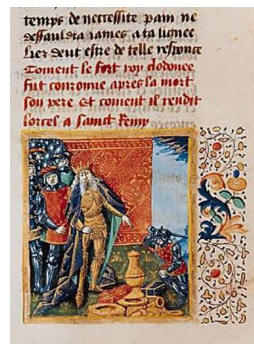 temps de neccessite pain ne
deffauldra iames a ta lignee
Lier dont estre de telle responce
Coment le fort roy clodouee
fut couronne apres la mort
son pere Et coment il rendit
lorcel a sainct Remy